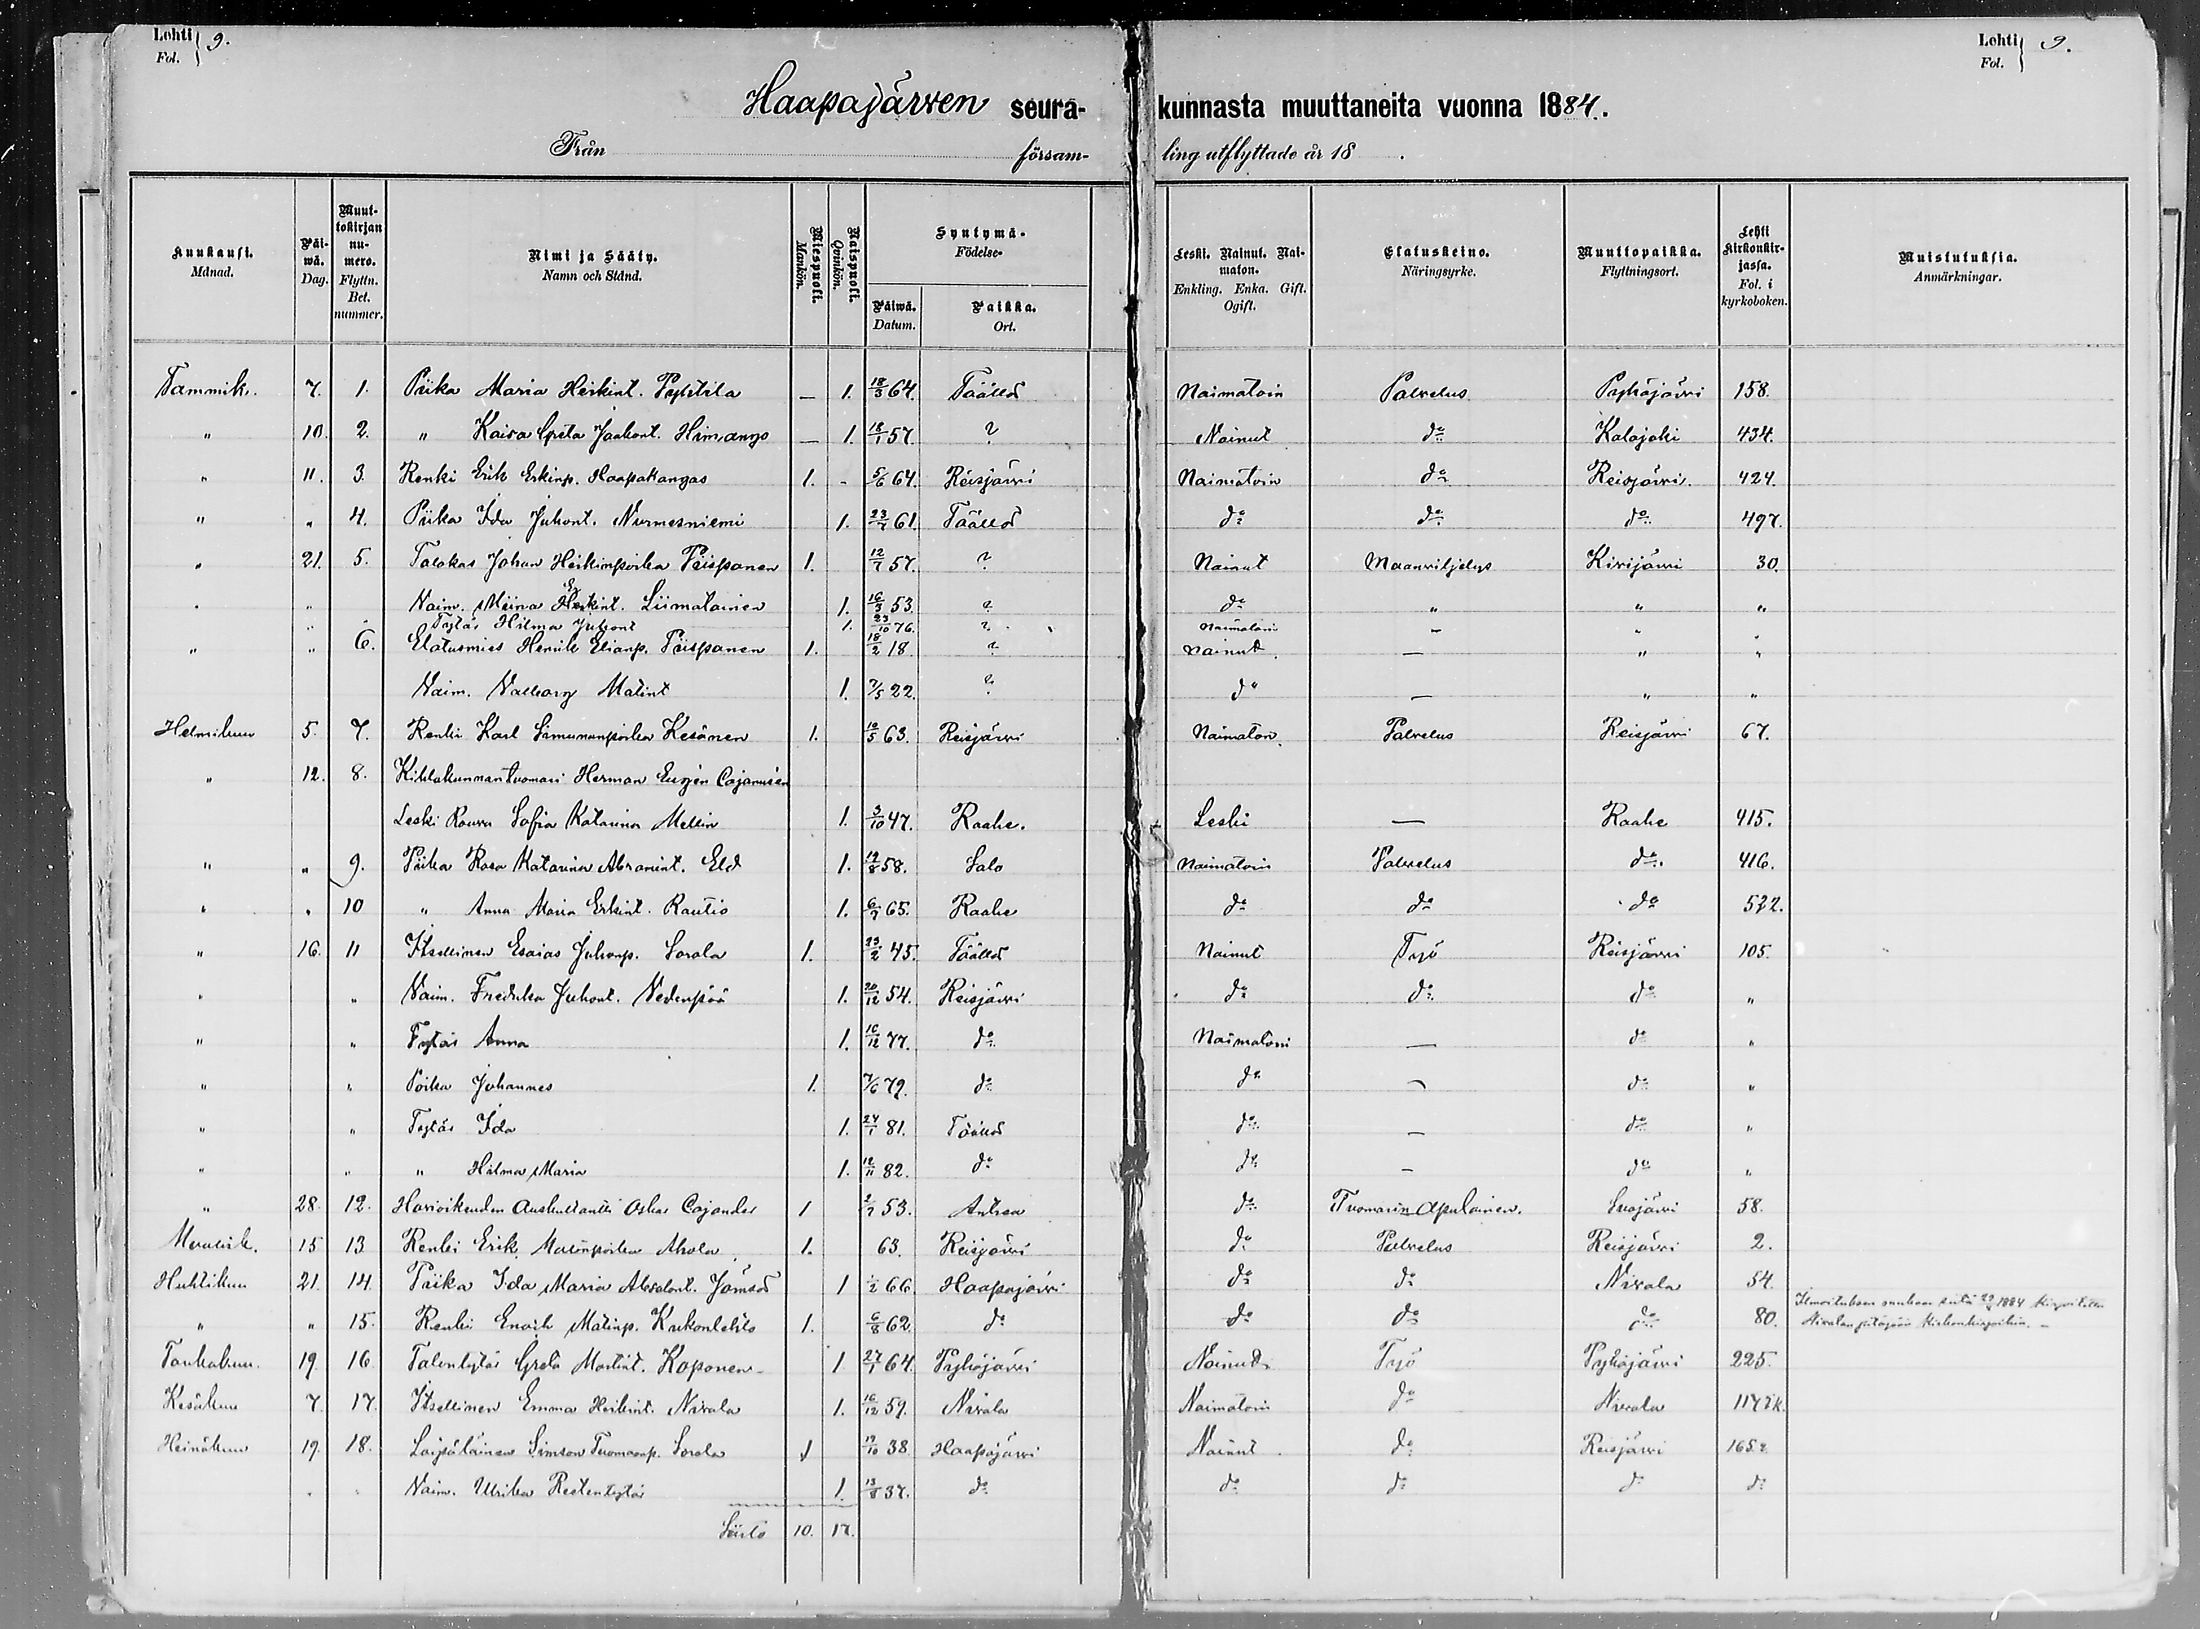 Lehti 9.
Fol.
Lehti 9.
Fol.
Haapajärwen seura- kunnasta muuttaneita vuonna 1884.
Från försam- ling utflyttade år 18 .
Kuukausi. Månad.
Päi-wä. Dag.
Muut-tokirjan nu-mero. Flyttn. Bet. nummer.
Nimi ja Sääty. Namn och Stånd.
Miespuoli. Mankön.
Naispuoli. Qvinkön.
Syntymä- Födelse-
Päiwä. Datum.
Paikka. Ort.
Leski. Nainut. Nai-maton. Enkling. Enka. Gift. Ogift.
Elatuskeino. Näringsyrke.
Muuttopaikka. Flyttningsort.
Lehti Kirkonkir-jassa. Fol. i kyrkoboken.
Muistutuksia. Anmärkningar.
Tammik. 7. 1. Piika Maria Heikint. Pyhtila — 1. 18/3 64. Täällä Naimatoin Palvelus Pyhäjärwi 158.
" 10. 2. " Kaisa Greta Jaakont. Himango — 1. 18/1 57. ? Nainut do Kalajoki 434.
" 11. 3. Renki Erik Erkinp. Haapakangas 1. - 5/6 64. Reisjärwi Naimatoin do Reisjärwi. 424.
" " 4. Piika Ida Juhont. Nurmesniemi 1. 23/7 61. Täällä do do do 497.
" 21. 5. Talokas Johan Heikinpoika Piispanen 1. 12/7 57. ? Nainut Maanviljelys Kivijärwi 30.
" " Naim. Miina Erkint. Liimatainen 1. 16/3 53. ? do " " "
" " Tytär Hilma Juhont 1. 23/10 76. ? Naimatoin — " "
" " 6. Elatusmies Henrik Elianp. Piispanen 1. 18/2 18. ? Nainut. — " "
Naim. Valborg Matint 1. 7/5 22. ? do — " "
Helmikuu 5. 7. Renki Karl Simunanpoika Kesänen 1. 12/5 63. Reisjärwi Naimaton. Palvelus Reisjärwi 67.
" 12. 8. Kihlakunnantuomari Herman Eugén Cajanusen
Leski Rouva Sofia Katarina Mellin 1. 3/10 47. Raahe. Leski — Raahe 415.
" " 9. Piika Rosa Katarina Abramint. Eld 1. 12/8 58. Salo Naimatoin Palvelus do 416.
" " 10 " Anna Maria Erkint. Rautio 1. 6/9 65. Raahe do do do 522.
" 16. 11 Itsellinen Esaias Juhonp. Sorola 1. 23/2 45. Täällä Nainut Työ Reisjärwi 105.
" " Naim. Fredrika Juhont. Vedenpää 1. 20/12 54. Reisjärwi do do do "
" " Tytär Anna 1. 16/12 77. do Naimatoin — do "
" " Poika Johannes 1. 7/6 79. do do — do "
" " Tytär Ida 1. 24/1 81. Täällä do — do "
" " " Hilma Maria 1. 12/11 82. do do — do "
" 28. 12. Hovioikeuden Auskultantti Oskar Cajander 1 2/7 53. Antrea do Tuomarin Apulainen. Suojärwi 58.
Maalisk. 15 13 Renki Erik Matinpoika Ahola 1. 63. Reisjärwi do Palvelus Reisjärwi 2.
Huhtikuu 21. 14. Piika Ida Maria Absalont. Jämsä 1 /2 66. Haapajärwi do do Nivala 54.
" " 15. Renki Enoch Matinp. Kukonlehto 1. 6/8 62. do do do do 80. 1884
Toukokuu. 19. 16. Talontytär Greta Martint. Koponen 1 27/1 64. Pyhäjärwi Nainut Työ Pyhäjärwi 225.
Kesäkuu 7. 17. Itsellinen Emma Heikint. Nivala 1. 16/12 59. Nivala Naimatoin do Nivala
Heinäkuu 19. 18. Loysäläinen Simson Tuomaanp. Sorola 1 19/10 38. Haapajärwi Nainut. do Reisjärwi 165.
" " Naim. Ulrika 1. 13/8 37. do do do do do
Siirto 10. 17.